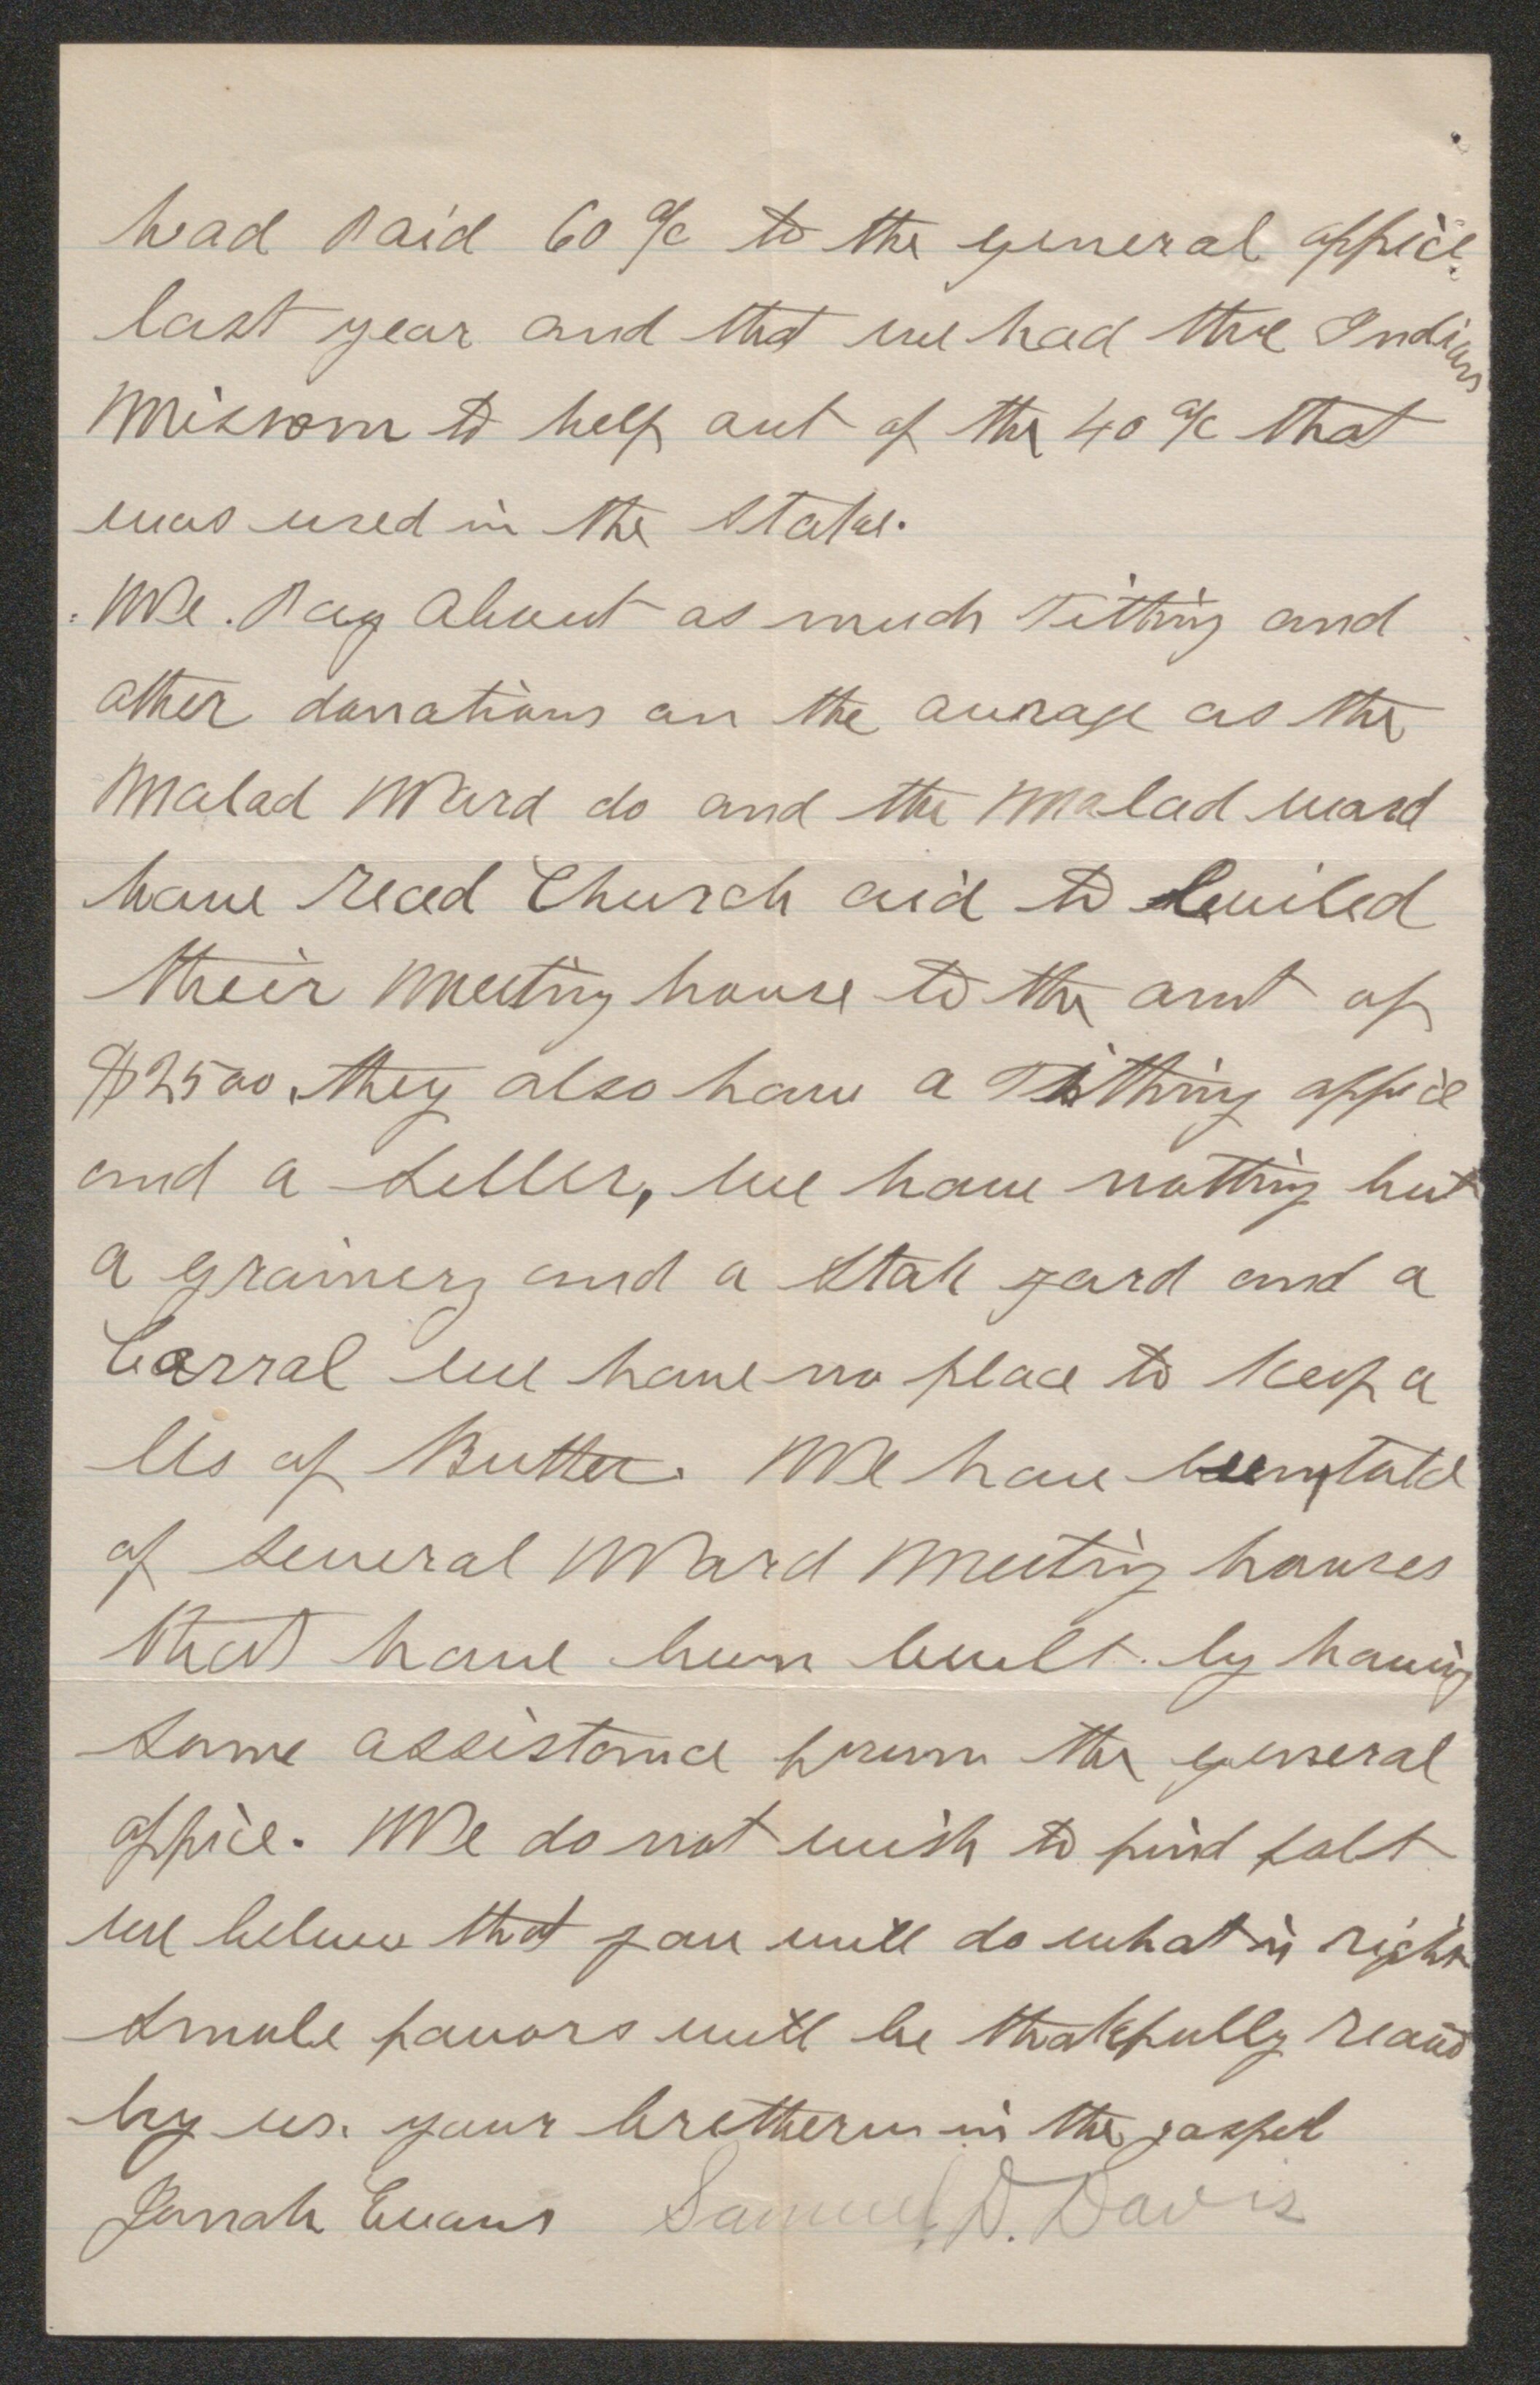 had Paid 60 % to the general office
last year and that we had the Indians
Mission to help out of the 40 % that
was used in the Stake.
We. Pay About as much Tithing and
other donations on the average as the
Malad Ward do and the Malad ward
have recd Church aid to build
their Meeting house to the amt of
$2500. they also have a Tithing office
and a Seller, we have nothing but
a grainery and a Stak yard and a
Corral we have no place to Keep a
lb of Butter. We have been told
of several Ward Meeting houses
that have been built by having
some assistance from the general
office. We do not wish to find falt
we believe that you will do what is right
Smale favors will be thakfully recaid
by us. your bretheren in the gospel
Jonah Evans Samuel D. Davis